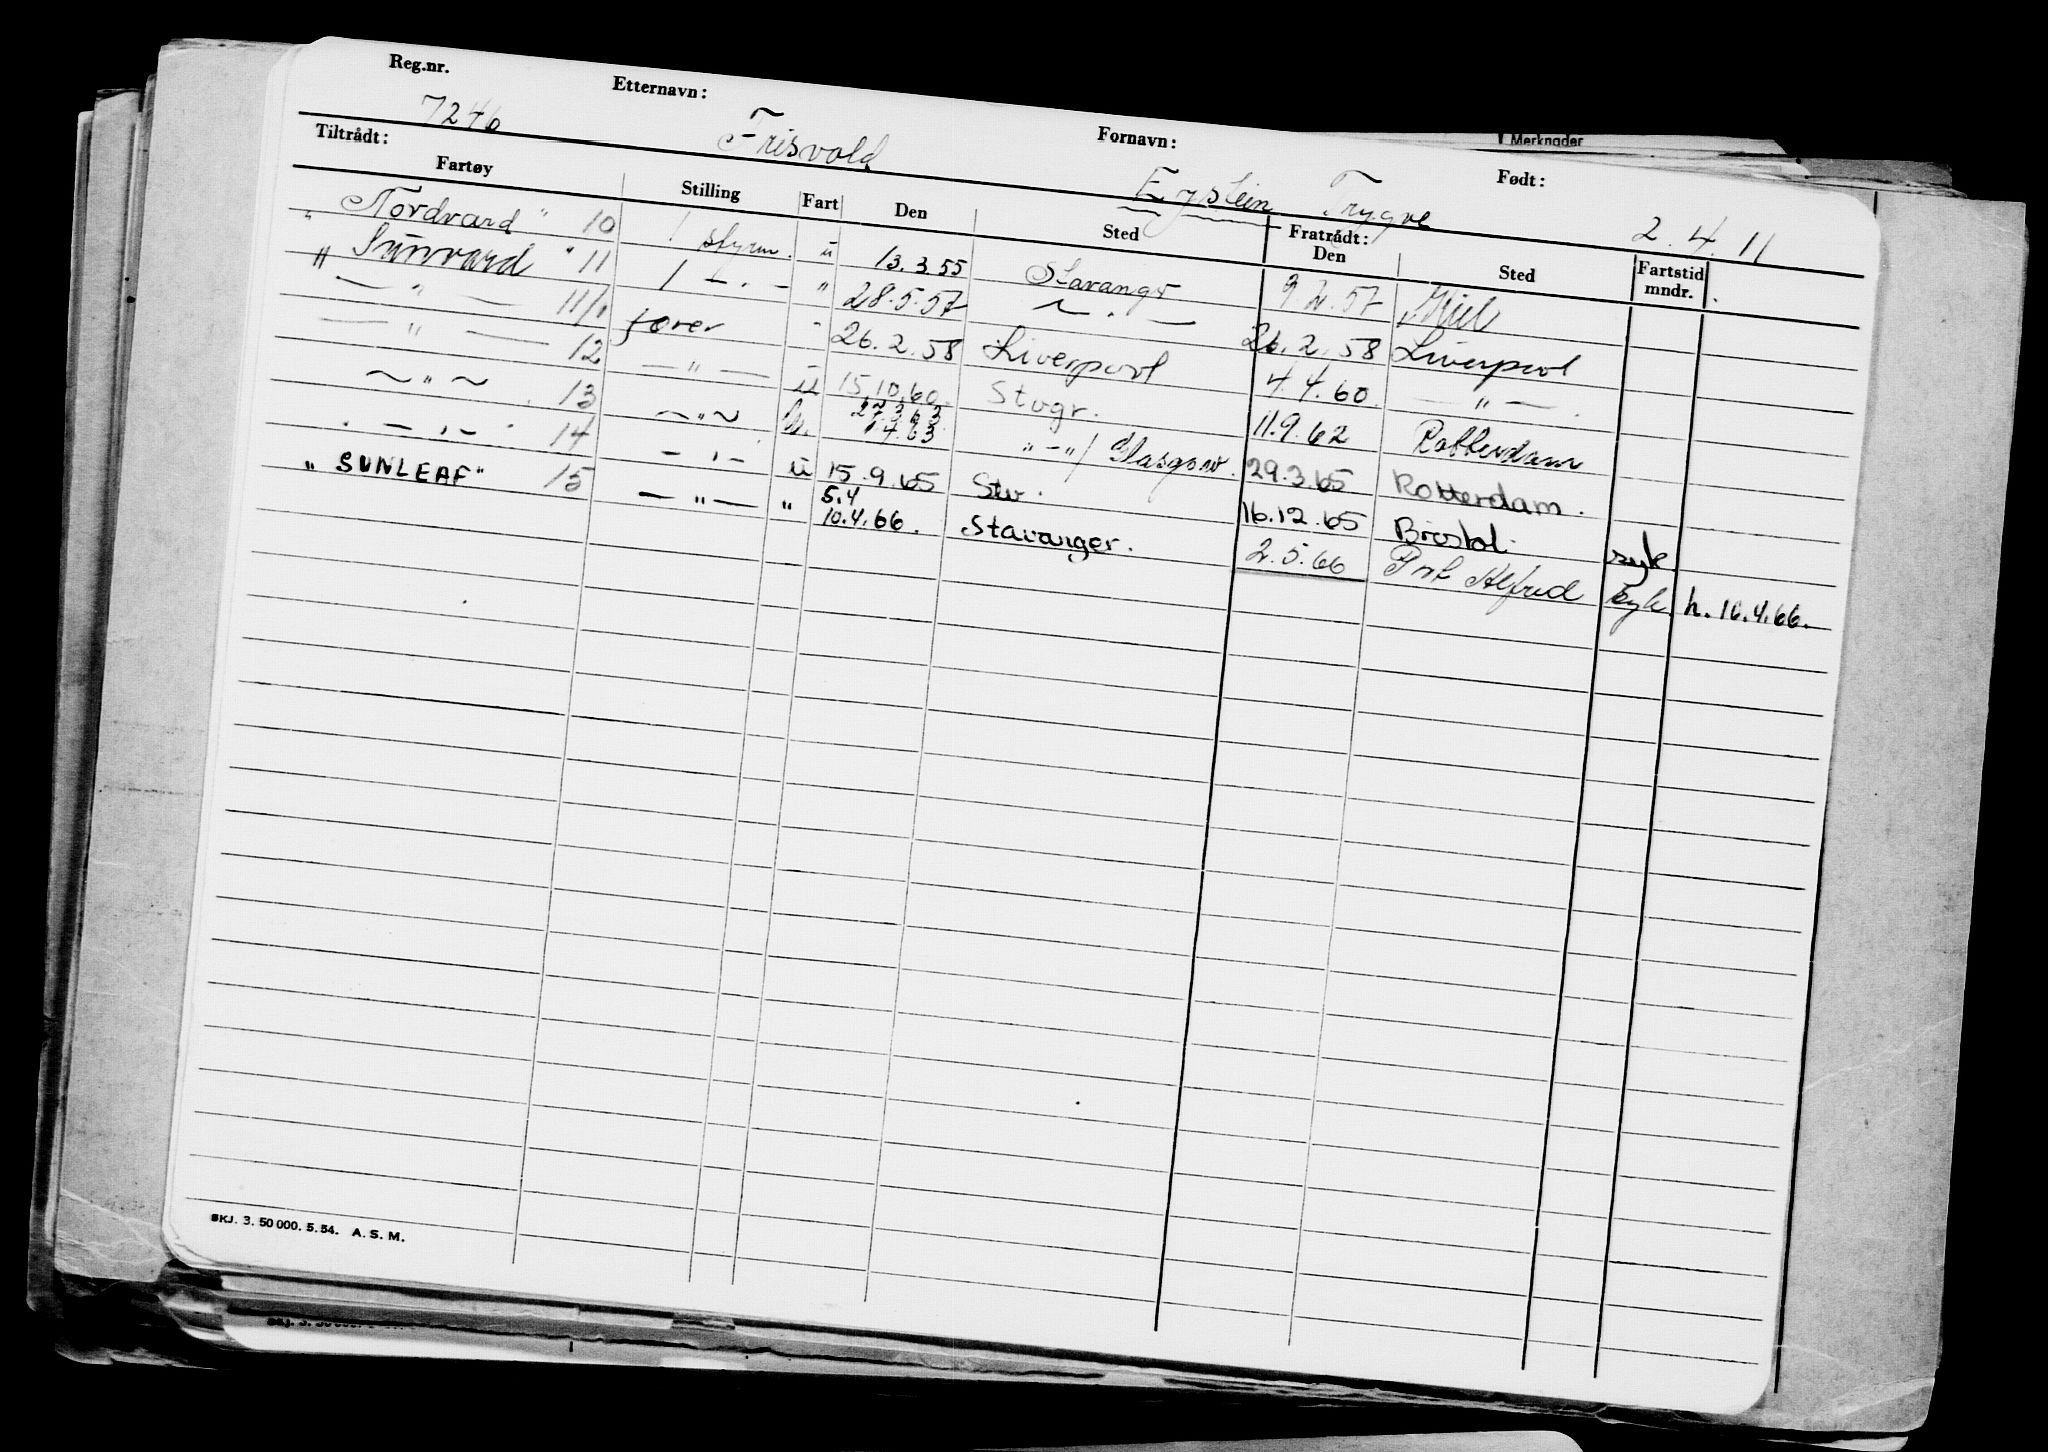 Merknader
Reg.nr. 7246 Etternavn: Frisvold Fornavn: Eystein Trygve Født: 2.4.11
Tiltrådt: Fratrådt:
Fartøy Stilling Fart Den Sted Den Sted Fartstid mndr.
"Nordvard" 10 1 styrm. u 13.3.55 Stavanger 9 2.57 Kiel
"Sunvard" 11 1 — . — " 28.5.57 ~ . — 26.2.58 Liverpool
— " — 11/1 fører - 26.2.58 Liverpool 4.4.60 — " — .
— " — 12 — " — u 15.10.60. Stvgr. 11.9.62 Rotterdam
~ " ~ . 13 ~ " ~ u. 27.3.63 1.4.63 " - " / Glasgow. 29.3.65 Rotterdam.
. — , — . 14 — , — u 15.9.65 Stv. 16.12.65 Bristol. syk
"SUNLEAF" 15 — " — " 5.4 10.4.66. Stavanger. 2.5.66 Prt Alfred Syk h. 16.4.66.
SKJ. 3. 50 000. 5. 54. A. S. M.